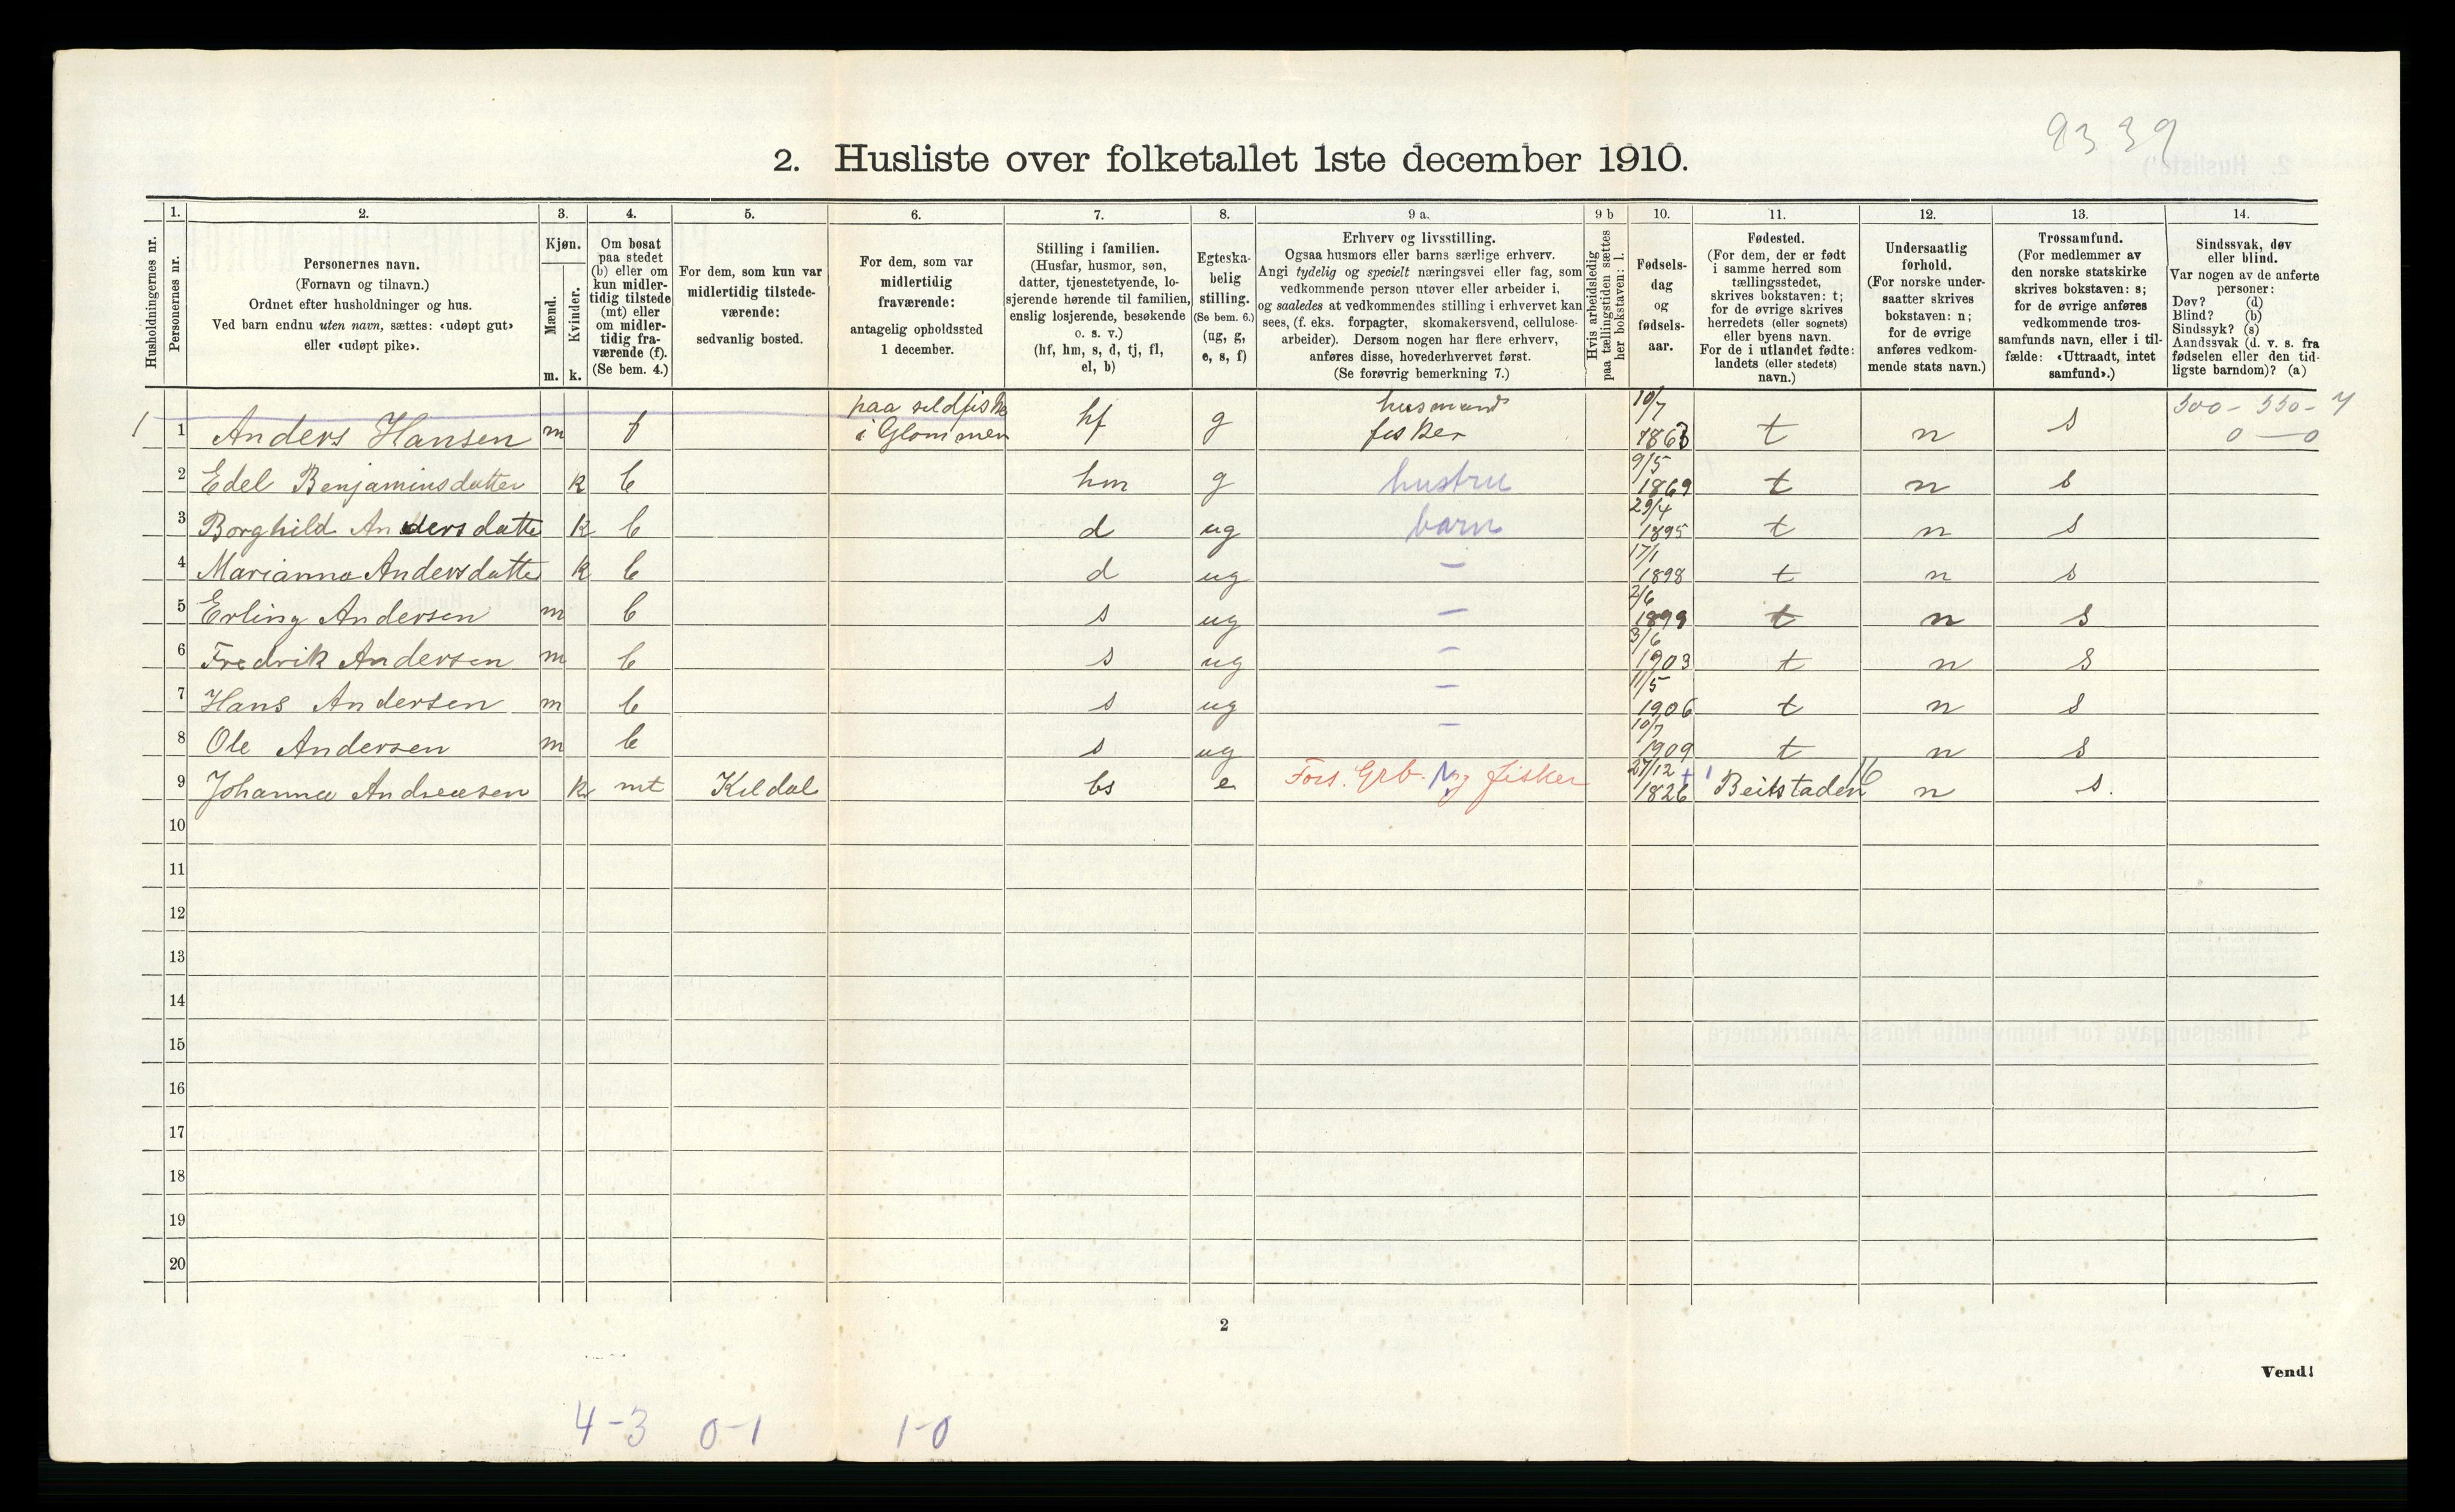 93 39
2. Husliste over folketallet 1ste december 1910.
Husholdningernes nr.
1.
Personernes nr.
2.
Personernes navn.
(Fornavn og tilnavn.)
Ordnet efter husholdninger og hus.
Ved barn endnu uten navn, sættes: «udøpt gut»
eller «udøpt pike».
3.
Kjøn.
Mænd.
Kvinder.
m. k.
4.
Om bosat
paa stedet
(b) eller om
kun midler-
tidig tilstede
(mt) eller
om midler-
tidig fra-
værende (f).
(Se bem. 4.)
5.
For dem, som kun var
midlertidig tilstede-
værende:
sedvanlig bosted.
6.
For dem, som var
midlertidig
fraværende:
antagelig opholdssted
1 december.
7.
Stilling i familien.
(Husfar, husmor, søn,
datter, tjenestetyende, lo-
sjerende hørende til familien,
enslig losjerende, besøkende
o. s. v.)
(hf, hm, s, d, tj, fl,
el, b)
8.
Egteska-
belig
stilling.
(Se bem. 6.)
(ug, g,
e, s, f)
9 a.
Erhverv og livsstilling.
Ogsaa husmors eller barns særlige erhverv.
Angi tydelig og specielt næringsvei eller fag, som
vedkommende person utøver eller arbeider i,
og saaledes at vedkommendes stilling i erhvervet kan
sees, (f. eks. forpagter, skomakersvend, cellulose-
arbeider). Dersom nogen har flere erhverv,
anføres disse, hovederhvervet først.
(Se forøvrig bemerkning 7.)
9 b
Hvis arbeidsledig
paa tællingstiden sættes
her bokstaven: l.
10.
Fødsels-
dag
og
fødsels-
aar.
11.
Fødested.
(For dem, der er født
i samme herred som
tællingsstedet,
skrives bokstaven: t;
for de øvrige skrives
herredets (eller sognets)
eller byens navn.
For de i utlandet fødte:
landets (eller stedets)
navn.)
12.
Undersaatlig
forhold.
(For norske under-
saatter skrives
bokstaven: n;
for de øvrige
anføres vedkom-
mende stats navn.)
13.
Trossamfund.
(For medlemmer av
den norske statskirke
skrives bokstaven: s;
for de øvrige anføres
vedkommende tros-
samfunds navn, eller i til-
fælde: «Uttraadt, intet
samfund».)
14.
Sindssvak, døv
eller blind.
Var nogen av de anførte
personer:
Døv? (d)
Blind? (b)
Sindssyk? (s)
Aandssvak (d. v. s. fra
fødselen eller den tid-
ligste barndom)? (a)
1 1 Anders Hansen m f paa sildfiske i Glommen hf g husmand fisker 10/7 1863 t n s 500-550-4 0—0
2 Edel Benjaminsdatter k b hm g hustru 9/5 1869 t n s
3 Borghild Andersdatte k b d ug barn 29/4 1895 t n s
4 Marianna Andersdatte k b d ug — 17/1 1898 t n s
5 Erling Andersen m b s ug — 2/6 1899 t n s
6 Fredrik Andersen m b s ug — 3/6 1903 t n s
7 Hans Andersen m b s ug — 11/5 1906 t n s
8 Ole Andersen m b s ug — 10/7 1909 t n s
9 Johanna Andreasen k mt Kildal bs e Fors. Grb. og fisker 27/12 1826 + Beitstaden 16 n s.
10
11
12
13
14
15
16
17
18
19
20
2
Vend!
4-3 0-1 1-0